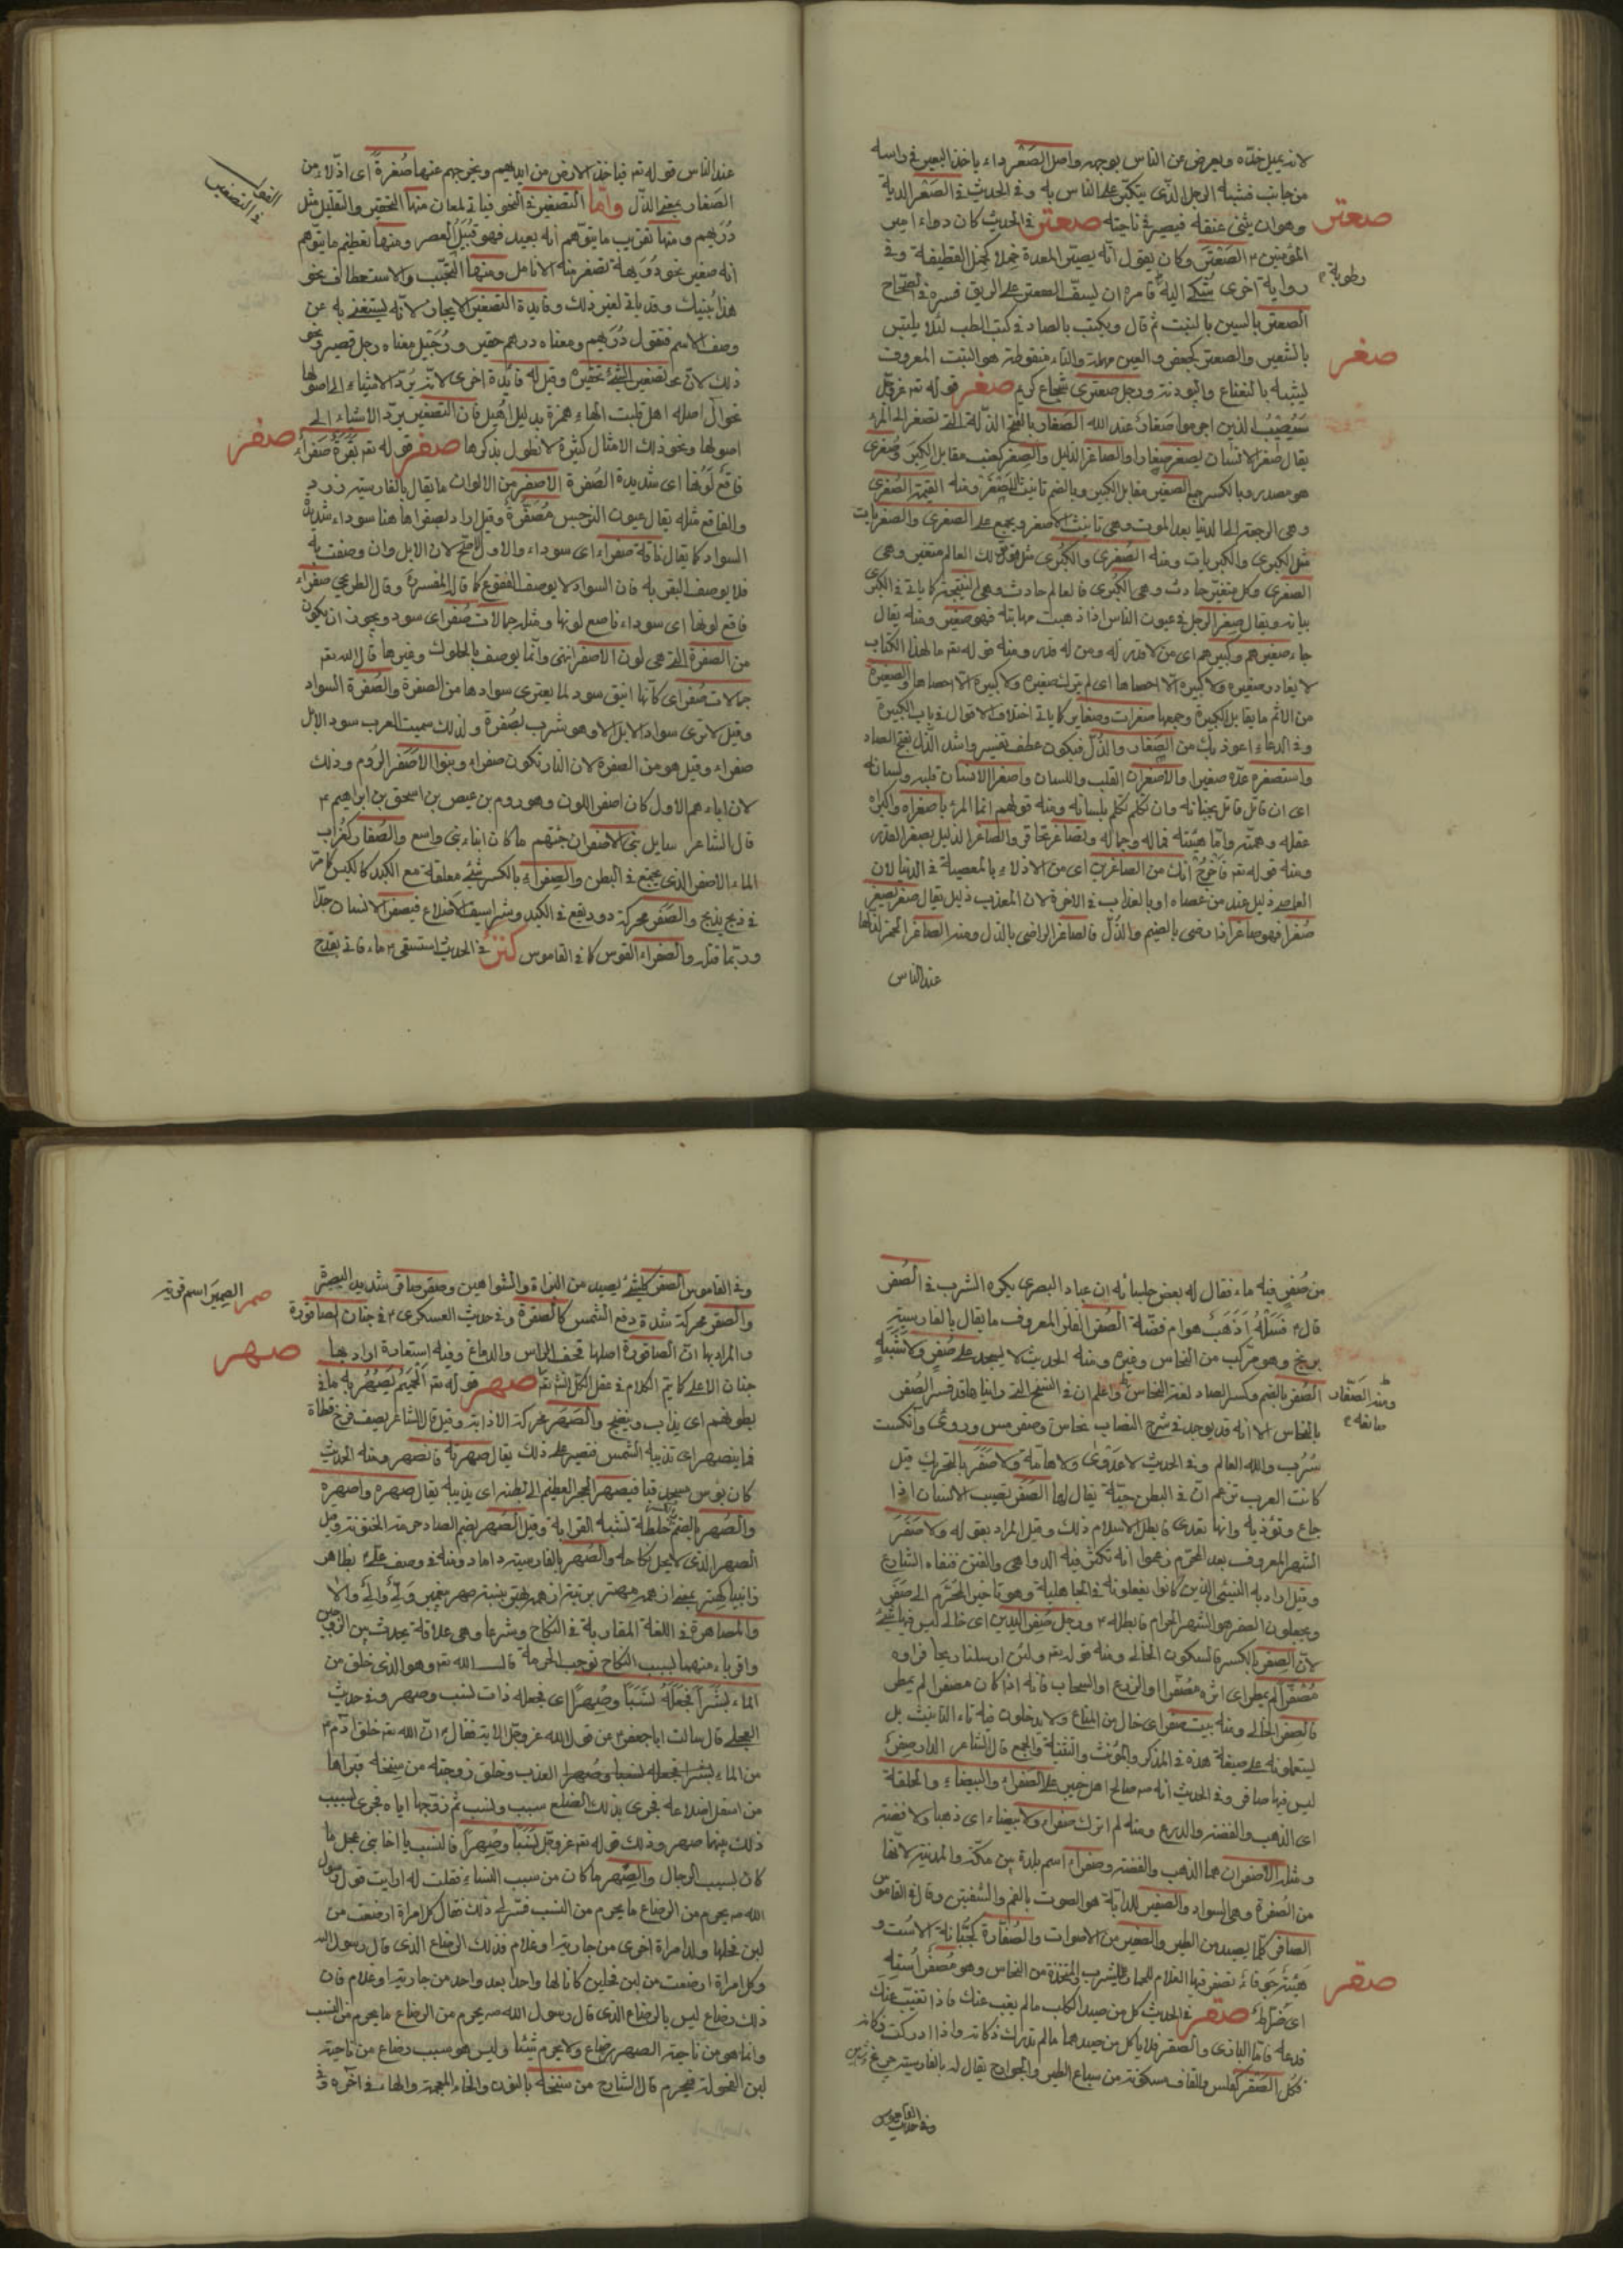 لانه يميل خده ويعرض عن الناس بوجهه واصل الصعر داء ياخذ البعير في راسه
من جانب فشبه الرجل الذي يتكبر على الناس به وفي الحديث الصعر الدية
وهو ان يثنى عنقه فيصير في ناحيته صعتر في الحديث كان دواء امير
صعتر
المؤمنين ع الصعتر وكان يقول انه يصير المعدة خملا كخمل القطيفة وفي
رواية اخرى شكى اليه رطوبة فامره ان يستف الصعتر على الريق فسره في الصحاح
الصعتر بالسين بالنبت ثم قال ويكتب بالصاد في كتب الطب لئلا يلتبس
بالشعير والصعتر كجعفر والعين مهملة والتاء منقوطة هو النبت المعروف
صغر
يشبه بالنعناع والبودنه ورجل صعترى شجاع كريم صغر قوله تعالى عز وجل
سيصيب الذين اجرموا صغار عند الله الصغار بالفتح الذلة التي تصغر الى المرء
يقال صغر الانسان يصغر صغارا والصاغر الذليل والصغر كعنب مقابل الكبر وصغرى
وهي الرجعة الى الدنيا بعد الموت وهي تانيث الاصغر ويجمع على الصغرى والصغريات
مثل الكبرى والكبريات ومنه الصغرى والكبرى مثل قولك العالم متغير وهي
الصغرى وكل متغير حادث وهي الكبرى فالعالم حادث وهي النتيجة كما ياتي في الكبرى
بيانه ويقال صغر الرجل في عيون الناس اذا ذهبت مهابته فهو صغير ومنه يقال
جاء صغيرهم وكبيرهم اي من لا قدر له ومن له قدر ومنه قوله تع ما لهذا الكتاب
لا يغادر صغيرة ولا كبيرة الا احصاها اي لم يترك صغيرة ولا كبيرة الا احصاها والصغيرة
من الاثم ما يقابل الكبيرة وجمعها صغيرات وصغاير كما ياتي اختلاف الاقوال في باب الكبيرة
وفي الدعاء اعوذ بك من الصغار والذل فيكون عطف تفسير واشد الذل بفتح الصاد
واستصغره عده صغيرا والاصغران القلب واللسان واصغرا الانسان قلبه ولسانه
اي ان قاتل قاتل بجنانه وان تكلم تكلم بلسانه ومنه قولهم انما المرء باصغراه واكبراه
عقله وهمته واما هيئته فماله وجماله وتصاغر تحاقر والصاغر الذليل بصغر القدر
ومنه قوله تع فاخرج انك من الصاغرين اي من الاذلاء بالمعصية في الدنيا لان
العاصي ذليل عند من عصاه او بالعذاب في الاخرة لان المعذب ذليل يقال صغر يصغر
صغرا فهو صاغر اذا رضى بالضيم والذل فالصاغر الراضى بالذل
عند الناس
عند الناس قوله تع فياخذ الارض من ايديهم ويخرجهم عنها صغرة اي اذلاء من
الصغار بمعنى الذل واما التصغير في النحو فياتي لمعان منها التحقير والتقليل مثل
الفعل
في التصغير
دريهم ومنها تقريب ما يتوهم انه بعيد فهو قبيل العصر ومنها تعظيم ما يتوهم
انه صغير نحو دويهة تصفر منه الانامل ومنها التحبب والاستعطاف نحو
هذا بنيك وقد ياتي لغير ذلك وفايدة التصغير الايجاز لانه يستغنى به عن
وصف الاسم فتقول دريهم ومعناه درهم حقير ورجيل معناه رجل قصير ونحو
ذلك لان تصغير الشئ تحقيره وقيل له فايدة اخرى لانه يرد الاشياء الى اصولها
نحو آل اصله اهل قلبت الهاء همزة بدليل اهيل فان التصغير يرد الاشياء الى
اصولها ونحو ذلك الامثال كثيرة لا نطول بذكرها صفر قوله تع بقرة صفراء
صفر
فاقع لونها اي شديدة الصفرة الاصفر من الالوان ما يقال بالفارسية زرد
والفاقع مثله يقال عيون النرجس مصفرة وقيل اراد بصفراء هاهنا سوداء شديدة
السواد كما يقال ناقة صفراء اي سوداء والاول اصح لان الابل وان وصفت به
فلا يوصف البقر به فان السواد لا يوصف بالفقوع كما قاله المفسرة وقال الطريحي صفراء
فاقع لونها اي سوداء ناصع لونها ومثله جمالات صفر اي سود ويجوز ان يكون
من الصفرة التي هي لون الاصفر انتهى وانما يوصف بالحلوك وغيرها قال الله تع
جمالات صفر اي كانها اينق سود لما يعترى سوادها من الصفرة والصفرة السواد
وقيل لا ترى سواد الابل الا وهو مشرب بصفرة ولذلك سميت العرب سود الابل
صفراء وقيل هو من الصفرة لان النار تكون صفراء وبنو الاصفر الروم وذلك
لان اباءهم الاول كان اصفر اللون وهو روم بن عيص بن اسحق بن ابراهيم ع
قال الشاعر سايل بني الاصفر ان جئتهم ما كان ابناء بني واسع والصفار كغراب
الماء الاصفر الذي يجتمع في البطن والصفراء بالكسر شئ معلقة مع الكبد كالكيس كما مر
في ذبح يذبح والصفر محركة دود يقع في الكبد وشراسيف الاضلاع فيصفر الانسان جدا
وربما قتله والصفراء القوس كما في القاموس في الحديث استسقى ع ماء فاتى بقدح
من صفر فيه ماء فقال له بعض جلسائه ان عباد البصري يكره الشرب في الصفر
قال ع فسله اذهب هو ام فضة الصفر الفلز المعروف ما يقال بالفارسية
برنج وهو مركب من النحاس وغيره ومنه الحديث لا يسجد على صفر ولا شبه
الصفر بالضم وكسر الصاد لغة النحاس واعلم ان في النسخ التي رايناها قد فسر الصفر
ومنه الصفار
صانعه
بالنحاس الا انه قد يوجد في شرح النصاب نحاس وصفر مس وروى وآنكست
سرب والله العالم وفي الحديث لا عدوى ولا هامة ولا صفر بالتحريك قيل
كانت العرب تزعم ان في البطن حية يقال لها الصفر تصيب الانسان اذا
جاع وتؤذيه وانها تعدى فابطل الاسلام ذلك وقيل المراد بقوله ولا صفر
الشهر المعروف بعد المحرم زعموا انه تكثر فيه الدواهي والفتن فنفاه الشارع
وقيل اراد به النسيئ الذين كانوا يفعلونه في الجاهلية وهو تاخير المحرم الى صفر
ويجعلون الصفر هو الشهر الحرام فابطله ع ورجل صفر اليدين اي خالى ليس فيها شئ
لان الصفر بالكسر فالسكون الخالي ومنه قوله تع ولئن ارسلنا ريحا فراوه
مصفرا لم يمطر اي اثره مصفرا والزرع او السحاب فانه اذا كان مصفرا لم يمطر
فالصفر الخالي ومنه بيت صفر اي خال من المتاع ولا يدخلون فيه تاء التانيث بل
يستعملونه على صيغة هذه في المذكر والمؤنث والتثنية والجمع قال الشاعر الدار صفر
ليس فيها صافر وفي الحديث انه ص صالح اهل خيبر على الصفراء والبيضاء والحلقة
اي الذهب والفضة والدرع ومنه لم اترك صفراء ولا بيضاء اي ذهبا ولا فضة
ومثله الاصفران هما الذهب والفضة وصفراء اسم بلدة بين مكة والمدينة لانها
من الصفرة وهي السواد والصفير للدابة هو الصوت بالفم والشفتين وقال في القاموس
الصافر كلما يصيد من الطير والصفير من الاصوات والصفارة كجبانة الاست و
هيئة جوفاء يصفر فيها الغلام للحمام المتخذة من النحاس وهو مصفر استه
صقر
اي ضراط صقر في الحديث كل من صيد الكلب ما لم يغب عنك فاذا تغيب عنك
فدعه فاما البازى والصقر فلا ياكل من صيدهما ما لم تدرك ذكاته واذا ادركت ذكاته
فكل الصقر كفلس والقاف مسكونة من سباع الطير والجوارح يقال له بالفارسية چرغ
وفي القاموس الصقر كل شئ يصيد من البزاة والشواهين وصقر صاقر شديد البصر
صمر الصمير اسم قرية
والصقر محركة شدة وقع الشمس كالصقرة وفي حديث العسكرى ع في جنان الصاقورة
والمراد بها ان الصاقورة اصلها قحف الراس والدماغ وفيه استعارة اراد بها
صهر
جنان الاعلى كما يتم الكلام في عقل الكل انش تع صهر قوله تع الحميم يصهر به ما في
بطونهم اي يذاب وينضج والصهر محركة الاذابة وقيل للشاعر يصف فرخ قطاة
فما ينصهر اي تذيبه الشمس فتصير على ذلك يقال صهرته فانصهر ومنه الحديث
كان يؤسس مسجد قبا فيصهر الحجر العظيم الى بطنه اي يذيبه يقال صهره واصهره
والصهر بالضم خلطة تشبه القرابة وقيل الصهر بضم الصاد حرمة الختونة وقيل
الصهر الذي لا يحل نكاحه والصهر بالفارسية داماد ومنه في وصف على ع بظاهر
والمصاهرة في اللغة المقاربة في النكاح وشرعا وهي علاقة يحدث بين الزوجين
واقرباء منهما بسبب النكاح توجب الحرمة قال الله تع وهو الذي خلق من
الماء بشرا فجعله نسبا وصهرا اي فجعله ذات نسب وصهر وفي حديث
العجلي قال سالت ابا جعفر ع عن قول الله عز وجل الاية فقال ع ان الله تع خلق آدم ع
من الماء بشرا فجعله نسبا وصهرا العذب وخلق زوجته من سنخه فبراها
من اسفل اضلاعه فجرى بذلك الضلع سبب ونسب ثم زوجها اياه فجرى بسبب
ذلك بينهما صهر وذلك قوله تع عز وجل نسبا وصهرا فالنسب يا اخا بني عجل ما
كان بسبب الرجال والصهر ما كان من سبب النساء فقلت له ارايت قول رسول
الله ص يحرم من الرضاع ما يحرم من النسب فسر لي ذلك فقال كل امراة ارضعت من
لبن فحلها ولد امراة اخرى من جارية او غلام فذلك الرضاع الذي قال رسول الله
وكل امراة ارضعت من لبن فحلين كانا لها واحدا بعد واحد من جارية او غلام فان
ذلك رضاع ليس بالرضاع الذي قال رسول الله ص يحرم من الرضاع ما يحرم من النسب
وانما هو من ناحية الصهر رضاع ولا يحرم شيئا وليس هو سبب رضاع من ناحية
لبن الفحولة فيحرم قال الشارح من سنخه بالنون والخاء المعجمة والهاء في آخره و